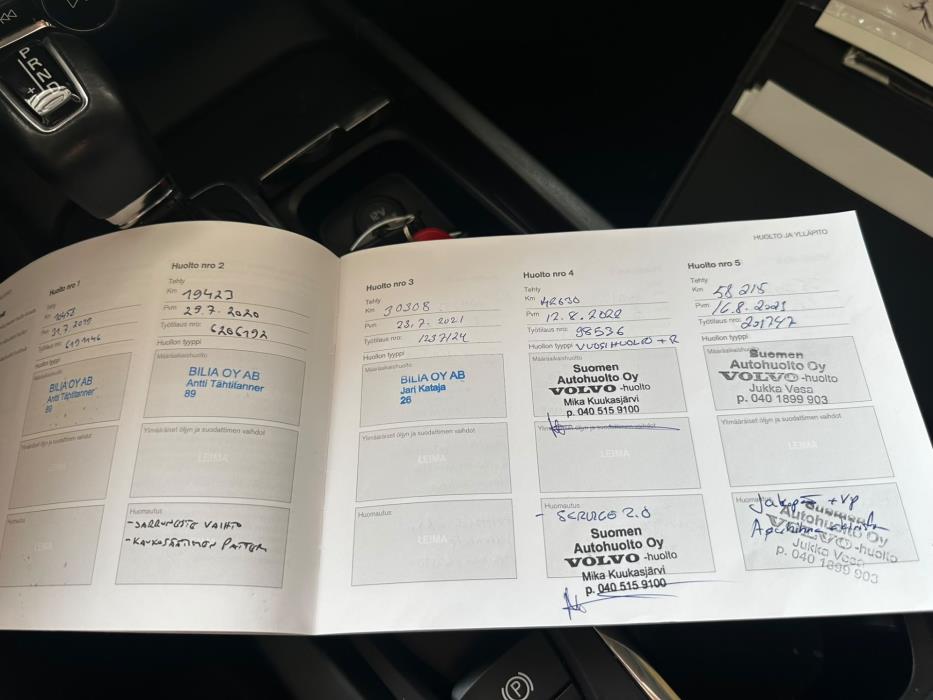 P
R
N
D
+
12V
HUOLTO JA YLLÄPITO
Huolto nro 1
Km
Pvm 31.7.2019
Työtilaus nro: 6191146
Huollon tyyppi
Määräaikaishuolto
BILIA OY AB
Antti Tähtitanner
89
Ylimääräiset öljyn ja suodattimen vaihdot
LEIMA
Huomautus
LEIMA
Huolto nro 2
Tehty
Km 19423
Pvm 29.7.2020
Työtilaus nro: 6206192
Huollon tyyppi
Määräaikaishuolto
BILIA OY AB
Antti Tähtitanner
89
Ylimääräiset öljyn ja suodattimen vaihdot
LEIMA
Huomautus
- JARRUNESTE VAIHTO
Huolto nro 3
Tehty
Km 30308
Pvm 23.7.2021
Työtilaus nro: 1237124
Huollon tyyppi
Määräaikaishuolto
BILIA OY AB
Jari Kataja
26
Ylimääräiset öljyn ja suodattimen vaihdot
LEIMA
Huomautus
Huolto nro 4
Tehty
Km 42630
Pvm 12.8.2022
Työtilaus nro: 98536
Huollon tyyppi VUOSIHUOLTO + R
Määräaikaishuolto
Suomen
Autohuolto Oy
VOLVO -huolto
Mika Kuukasjärvi
p. 040 515 9100
Ylimääräiset öljyn ja suodattimen vaihdot
LEIMA
Huomautus
- SERVICE 2.0
Suomen
Autohuolto Oy
VOLVO -huolto
Mika Kuukasjärvi
p. 040 515 9100
Huolto nro 5
Tehty
Km 58 215
Pvm 16.8.2021
Työtilaus nro:
Huollon tyyppi
Määräaikaishuolto
Suomen
Autohuolto Oy
VOLVO -huolto
Jukka Vesa
p. 040 1899 903
Ylimääräiset öljyn ja suodattimen vaihdot
LEIMA
Huomautus
+ VP
Suomen
Autohuolto Oy
VOLVO -huolto
Jukka Vesa
p. 040 1899 903
P